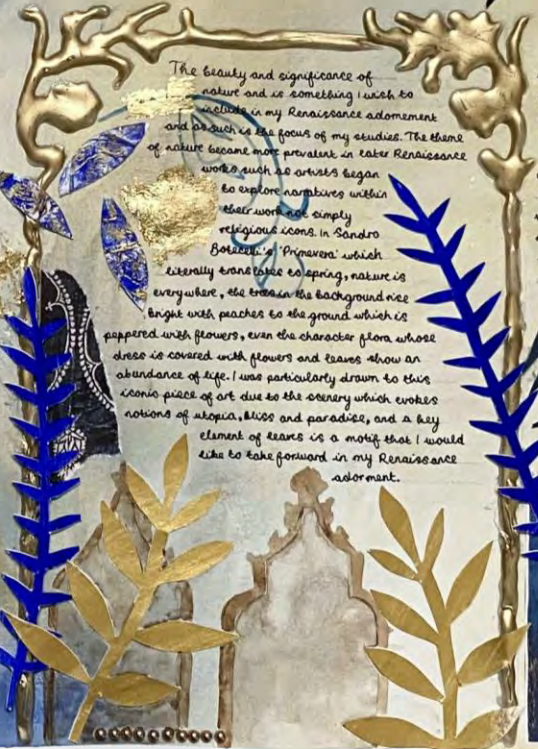 The beauty and significance of
nature and is something I wish to
include in my Renaissance adornement
and as such is the focus of my studies. The theme
of nature became more prevalent in later Renaissance
works such as artists began
to explore narratives within
their work not simply
religious icons. In Sandro
Botecelli's 'Primevera' which
literally translates to spring, nature is
everywhere, the trees in the background rise
bright with peaches to the ground which is
peppered with flowers, even the character flora whose
dress is covered with flowers and leaves show an
abundance of life. I was particularly drawn to this
iconic piece of art due to the scenery which evokes
notions of utopia, bliss and paradise, and a key
element of leaves is a motif that I would
like to take forward in my Renaissance
adorment.